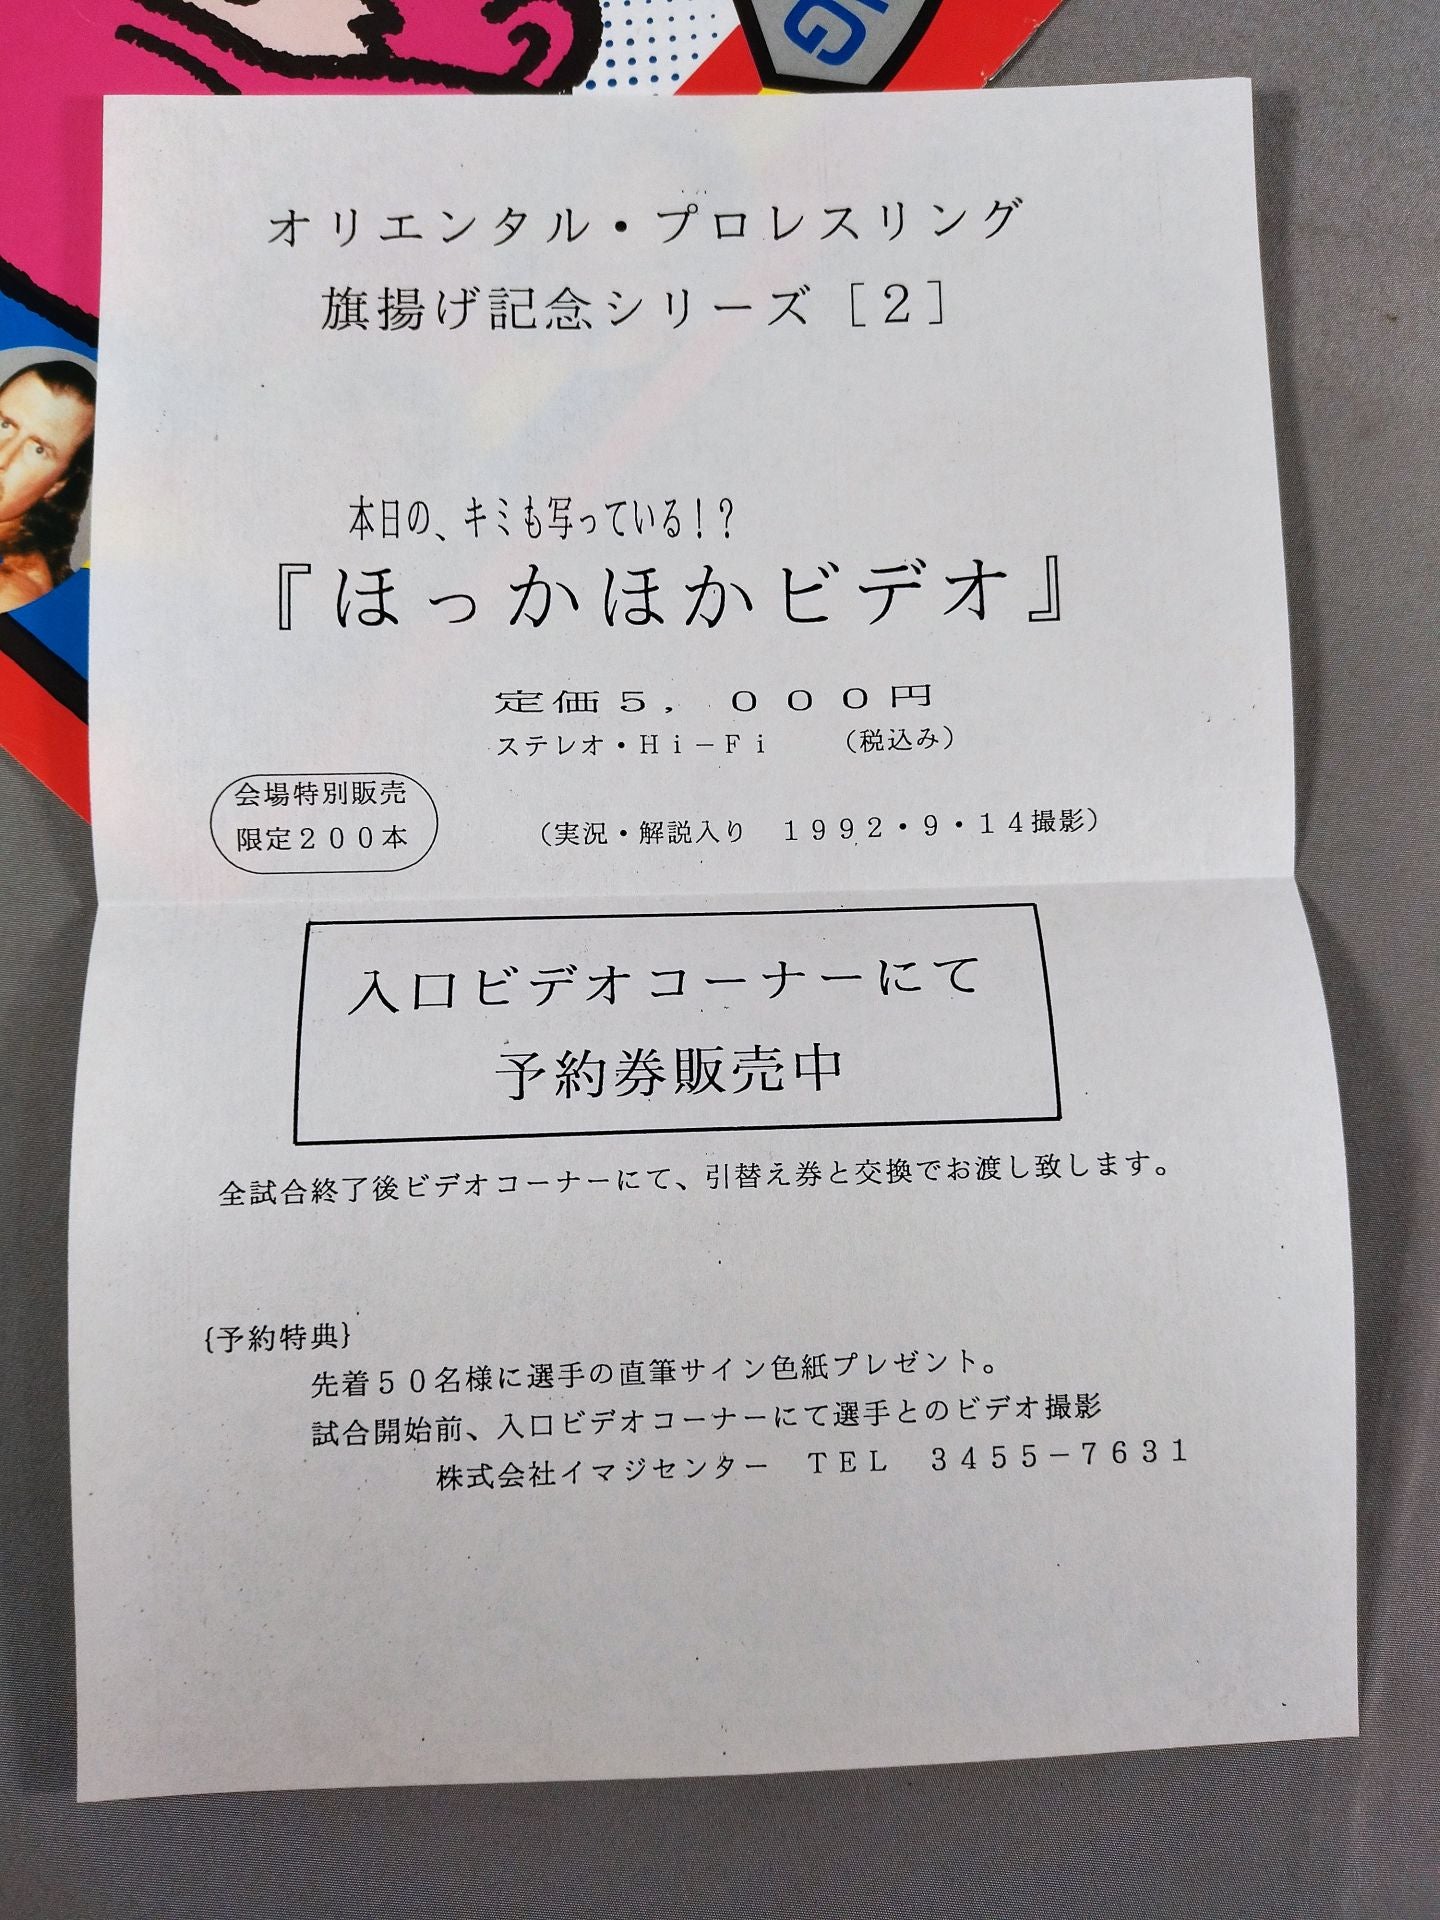 NG
オリエンタル・プロレスリング
旗揚げ記念シリーズ［２］
本日の、キミも写っている！？
『ほっかほかビデオ』
定価５，０００円
ステレオ・Ｈｉ－Ｆｉ　（税込み）
会場特別販売
限定２００本
（実況・解説入り　１９９２・９・１４撮影）
入口ビデオコーナーにて
予約券販売中
全試合終了後ビデオコーナーにて、引替え券と交換でお渡し致します。
{予約特典}
先着５０名様に選手の直筆サイン色紙プレゼント。
試合開始前、入口ビデオコーナーにて選手とのビデオ撮影
株式会社イマジセンター　ＴＥＬ　３４５５－７６３１